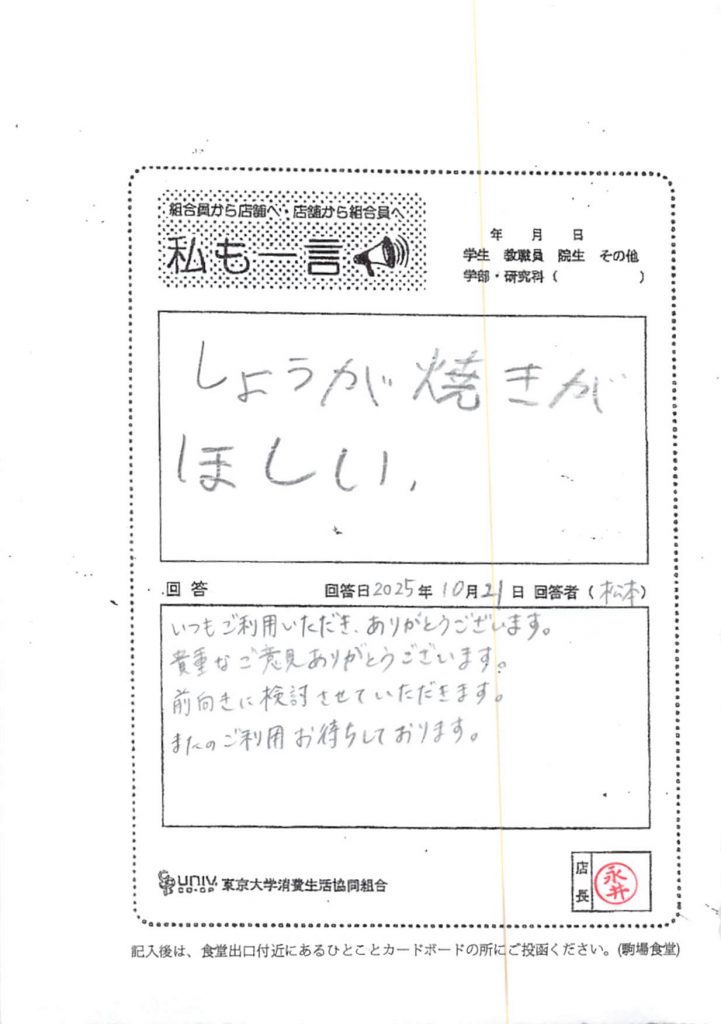 組合員から店舗へ・店舗から組合員へ
私も一言
年 月 日
学生 教職員 院生 その他
学部・研究科( )
しょうが焼きが
ほしい.
回答 回答日2025年10月21日 回答者(松本)
いつもご利用いただき、ありがとうございます。
貴重なご意見ありがとうございます。
前向きに検討させていただきます。
またのご利用お待ちしております。
UNIV. CO-OP 東京大学消費生活協同組合
店長 永井
記入後は、食堂出口付近にあるひとことカードボードの所にご投函ください。(駒場食堂)